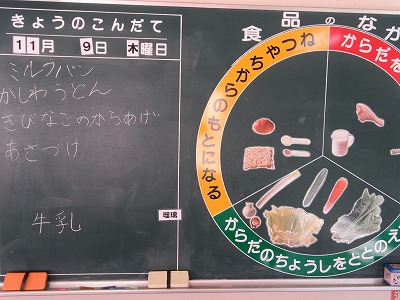 きょうのこんだて
11月 9日 木曜日
ミルクパン
かしわうどん
きびなごのからあげ
あさづけ
牛乳
瑠璃
食品のなか
らかちゃつね
のもとになる
からだを
からだのちょうしをととのえ